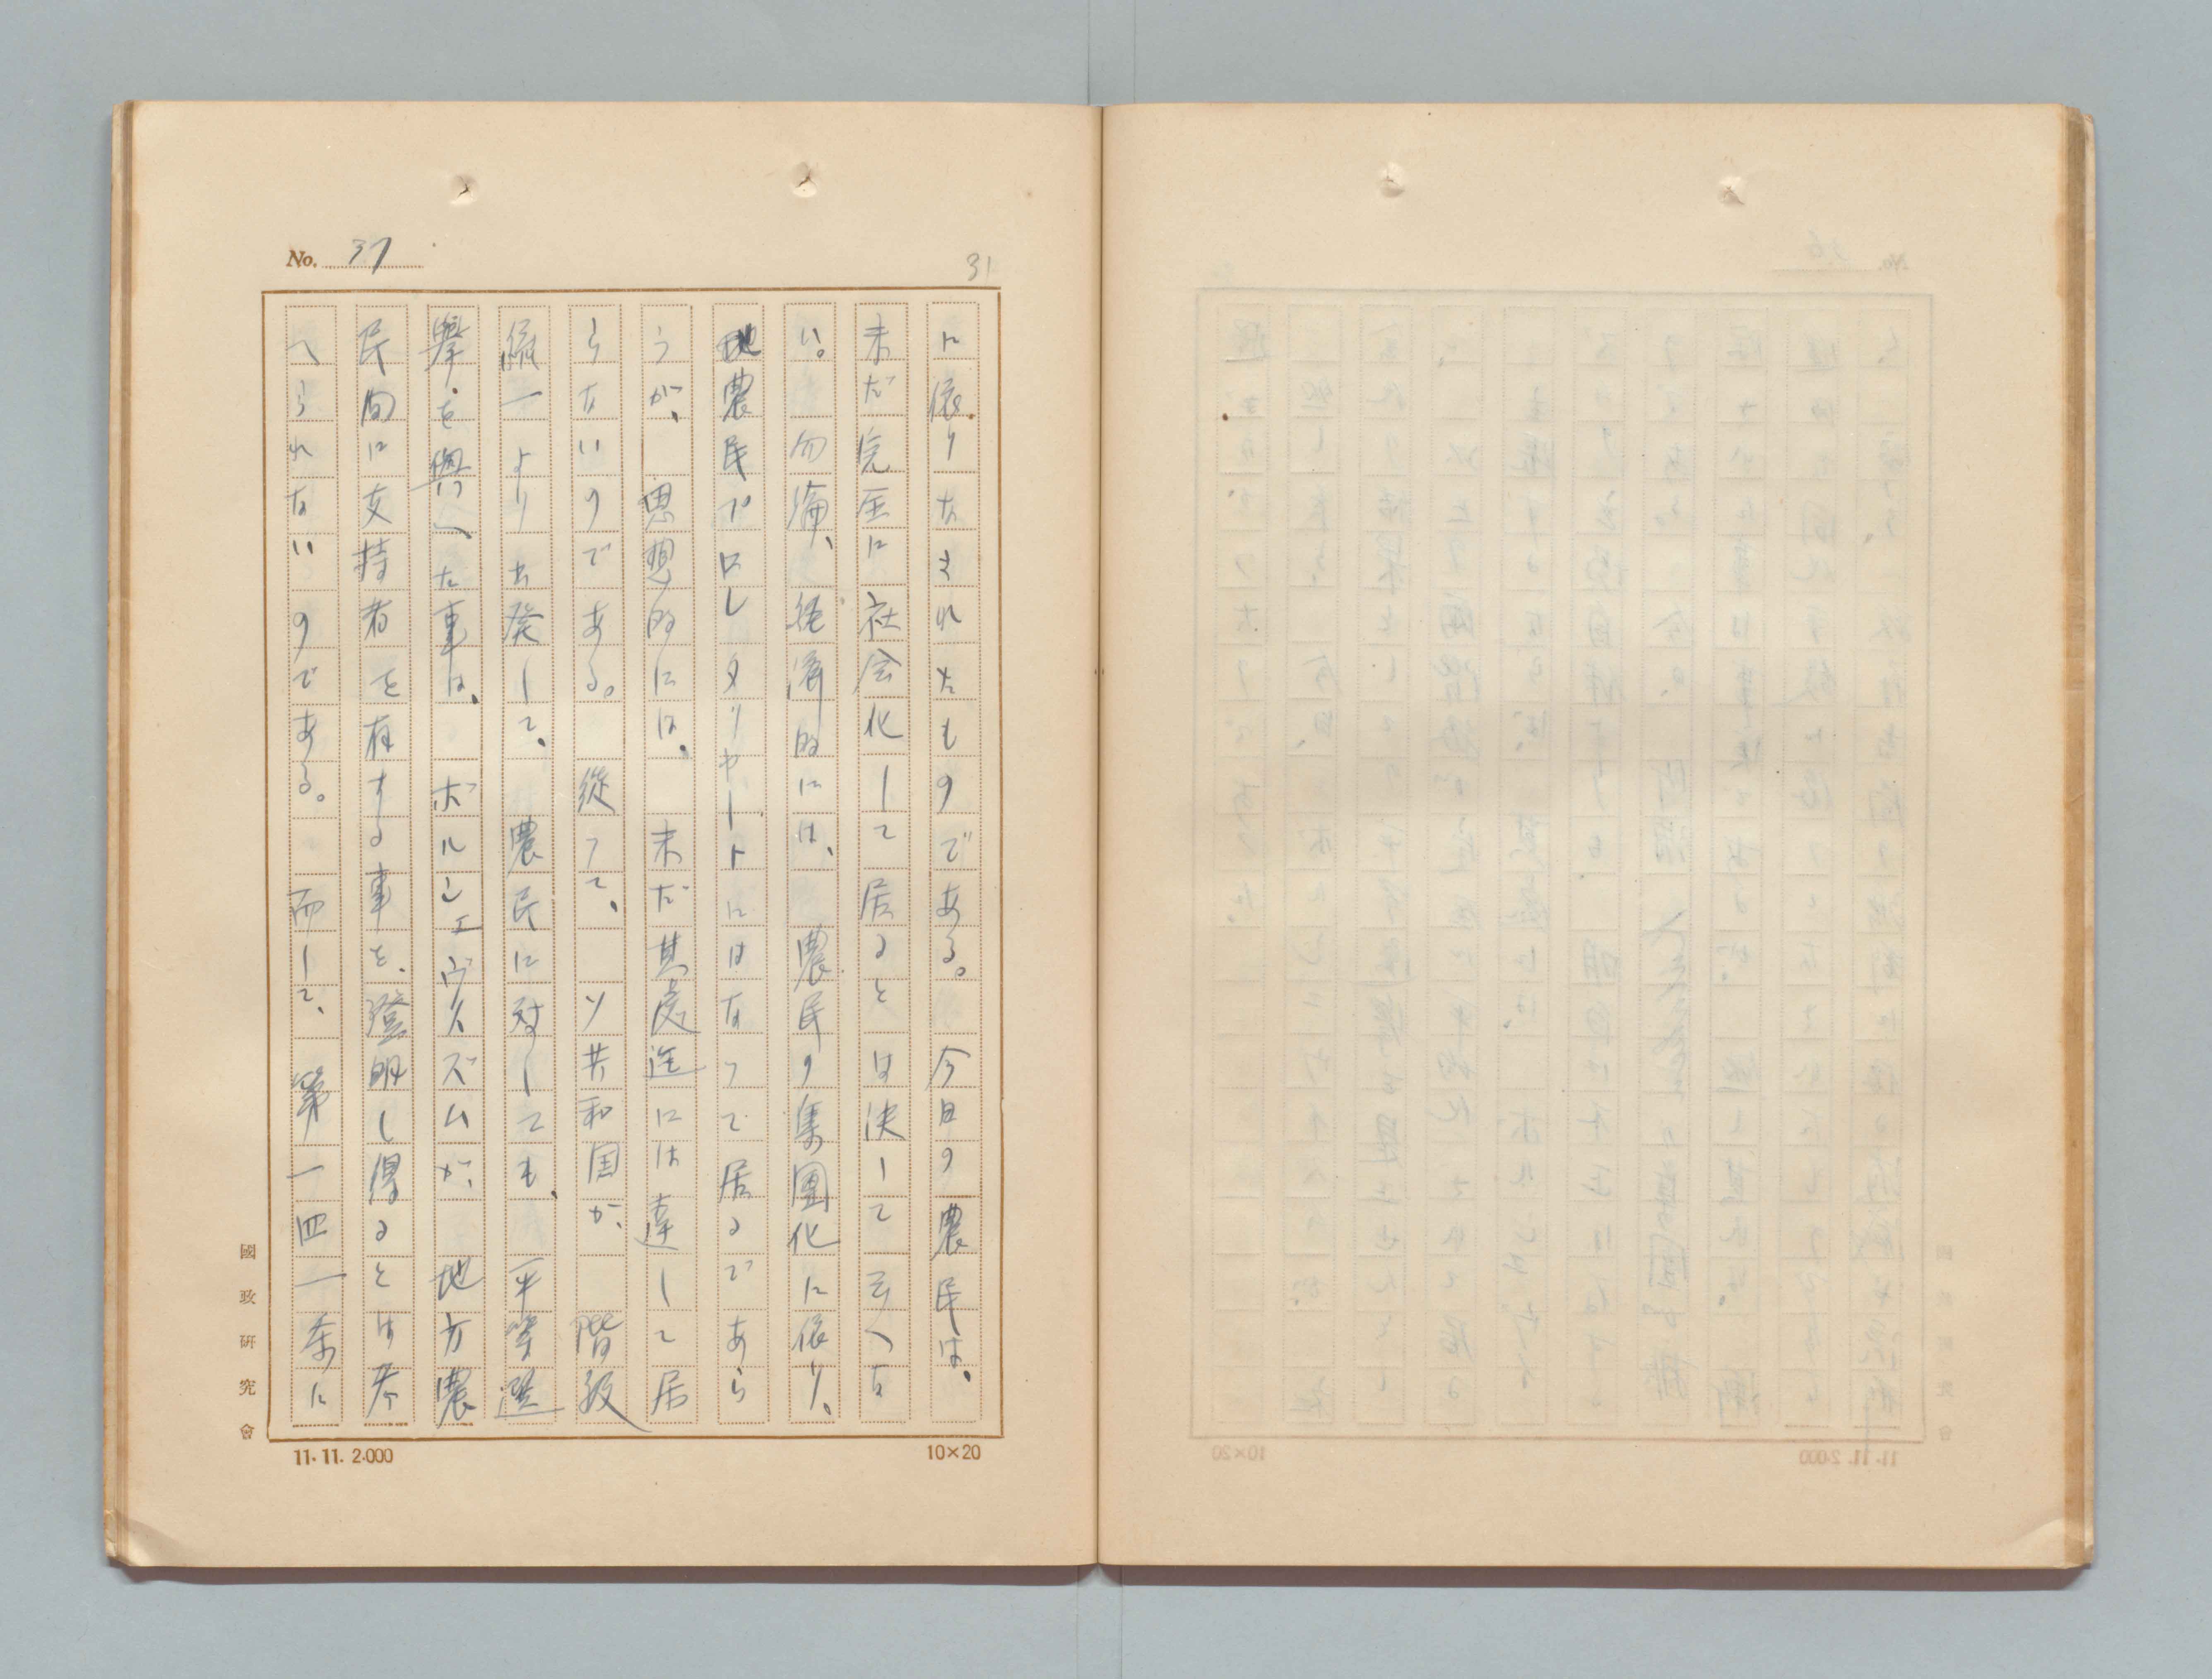 No. 37
31
に依りなされたものである。 今日の農民は、
未だ完全に社会化して居るとは決して云へな
い。 勿論、経済的には、 農民の集團化に依り、
農民プロレタリヤートにはなつて居るであら
うが、 思想的には、 未だ其處迄には達して居
らないのである。 従つて、 ソ共和国が、 階級
線一より出発して、 農民に対しても、 平等選
擧を與へた事は、 ボルシェヴィズムが、 地方農
民間に支持者を有する事を、證明し得るとは考
へられないのである。 而して、 第一四一条に
國政研究會
11.11.2.000
10×20